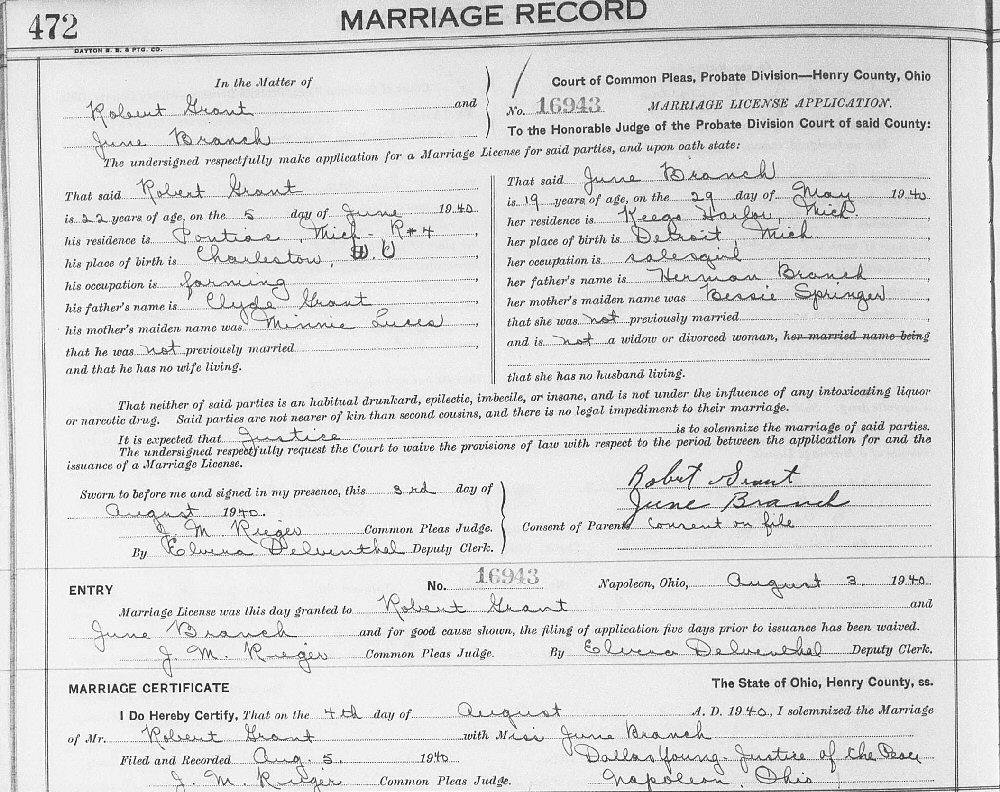 472
MARRIAGE RECORD
DAYTON B. B. & PTG. CO.
In the Matter of
Robert Grant and
June Branch
Court of Common Pleas, Probate Division—Henry County, Ohio
No. 16943 MARRIAGE LICENSE APPLICATION.
To the Honorable Judge of the Probate Division Court of said County:
The undersigned respectfully make application for a Marriage License for said parties, and upon oath state:
That said Robert Grant
is 22 years of age, on the 5 day of June 1940
his residence is Pontiac, Mich - R#4,
his place of birth is Charleston,
his occupation is farming,
his father's name is Clyde Grant,
his mother's maiden name was Minnie,
that he was not previously married
and that he has no wife living.
That said June Branch
is 19 years of age, on the 29 day of May 1940
her residence is Keego Harbor, Mich.,
her place of birth is Detroit, Mich,
her occupation is salesgirl,
her father's name is Herman Branch,
her mother's maiden name was Bessie Springer,
that she was not previously married,
and is not a widow or divorced woman, her married name being
that she has no husband living.
That neither of said parties is an habitual drunkard, epileptic, imbecile, or insane, and is not under the influence of any intoxicating liquor
or narcotic drug. Said parties are not nearer of kin than second cousins, and there is no legal impediment to their marriage.
It is expected that Justice is to solemnize the marriage of said parties.
The undersigned respectfully request the Court to waive the provisions of law with respect to the period between the application for and the
issuance of a Marriage License.
Sworn to before me and signed in my presence, this 3rd day of
August 1940.
J. M. Rieger Common Pleas Judge.
By Elvera Delventhal Deputy Clerk.
Robert Grant
June Branch
Consent of Parents Consent on file
ENTRY No. 16943 Napoleon, Ohio, August 3 1940
Marriage License was this day granted to Robert Grant and
June Branch and for good cause shown, the filing of application five days prior to issuance has been waived.
J. M. Rieger Common Pleas Judge. By Elvera Delventhal Deputy Clerk.
MARRIAGE CERTIFICATE The State of Ohio, Henry County, ss.
I Do Hereby Certify, That on the 4th day of August A. D. 1940, I solemnized the Marriage
of Mr. Robert Grant with Miss June Branch
Filed and Recorded Aug. 5. 1940 Dallas Young - Justice of the Peace
J. M. Rieger Common Pleas Judge. Napoleon, Ohio